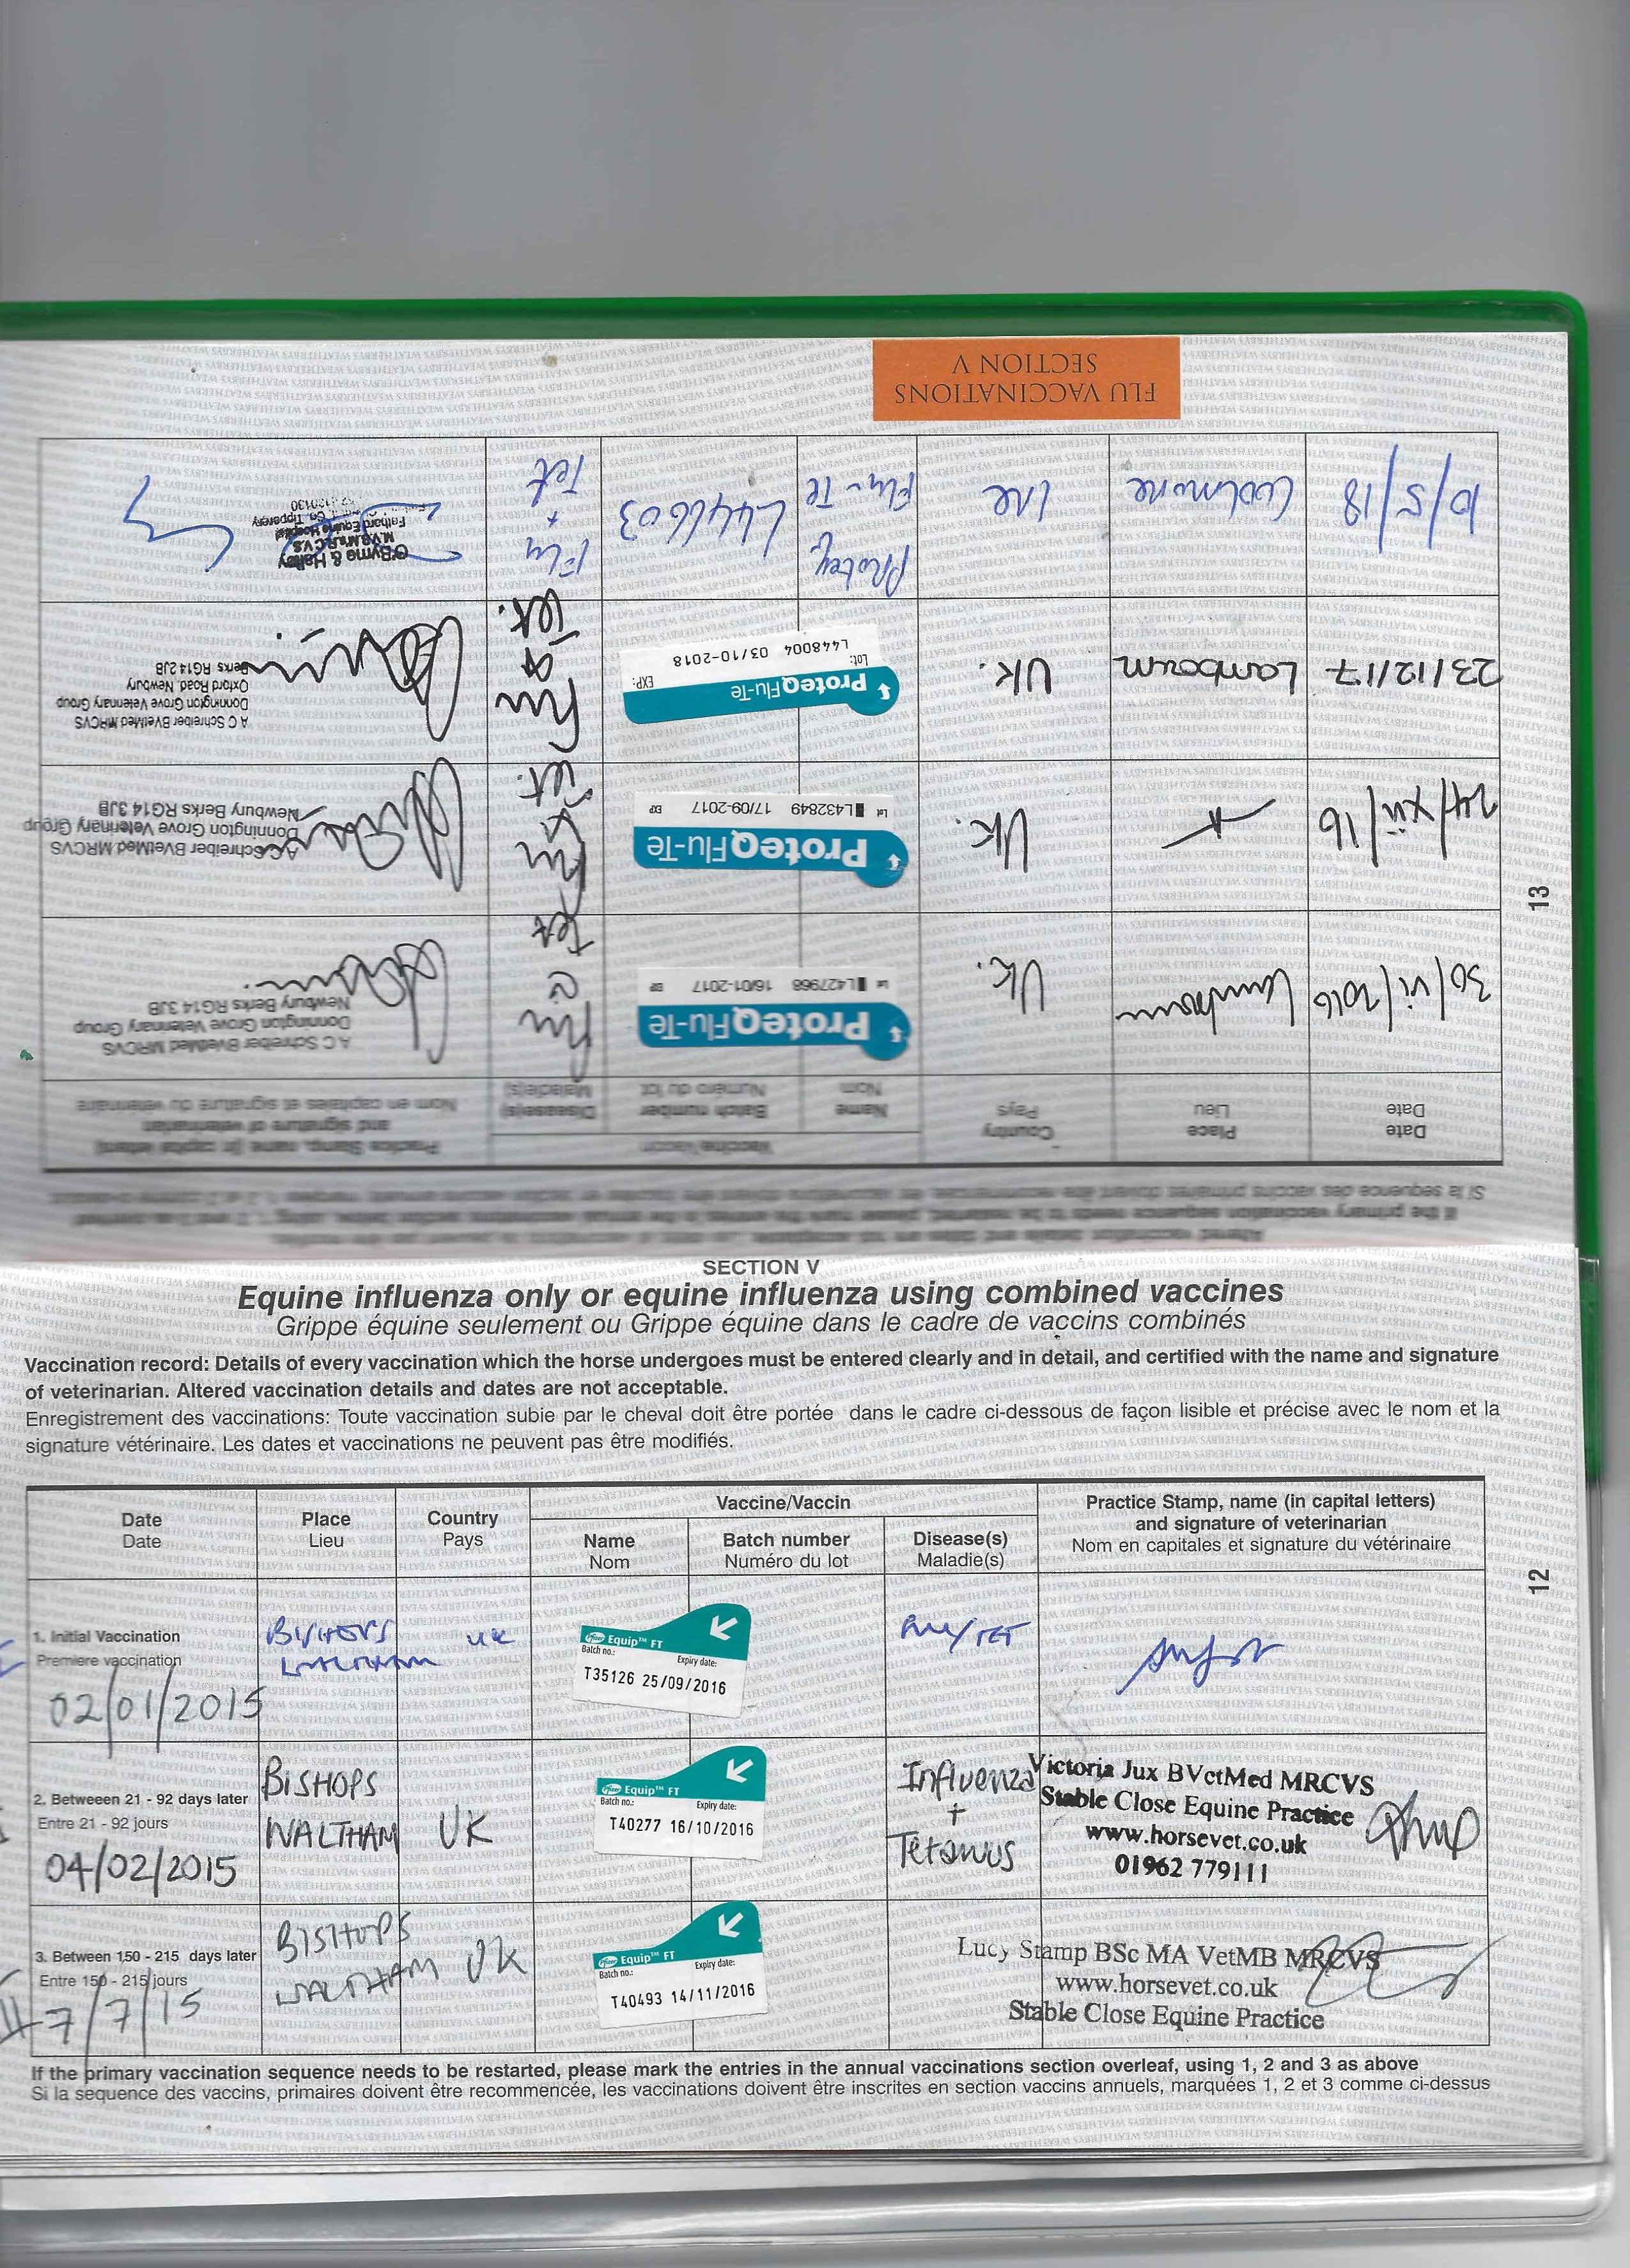 SECTION V
Equine influenza only or equine influenza using combined vaccines
Grippe équine seulement ou Grippe équine dans le cadre de vaccins combinés
Vaccination record: Details of every vaccination which the horse undergoes must be entered clearly and in detail, and certified with the name and signature
of veterinarian. Altered vaccination details and dates are not acceptable.
Enregistrement des vaccinations: Toute vaccination subie par le cheval doit être portée dans le cadre ci-dessous de façon lisible et précise avec le nom et la
signature vétérinaire. Les dates et vaccinations ne peuvent pas être modifiés.
Date
Date
Place
Lieu
Country
Pays
Vaccine/Vaccin
Name
Nom
Batch number
Numéro du lot
Disease(s)
Maladie(s)
Practice Stamp, name (in capital letters)
and signature of veterinarian
Nom en capitales et signature du vétérinaire
1. Initial Vaccination
Premiere vaccination
02/01/2015
BISHOPS
WALTHAM
UK
Pfizer Equip™ FT
Batch no.: Expiry date:
T35126 25/09/2016
FLU/TET
2. Betweeen 21 - 92 days later
Entre 21 - 92 jours
04/02/2015
BISHOPS
WALTHAM
UK
Pfizer Equip™ FT
Batch no.: Expiry date:
T40277 16/10/2016
Influenza
+
Tetanus
Victoria Jux BVetMed MRCVS
Stable Close Equine Practice
www.horsevet.co.uk
01962 779111
3. Between 150 - 215 days later
Entre 150 - 215 jours
7/7/15
BISHOPS
WALTHAM
UK
Pfizer Equip™ FT
Batch no.: Expiry date:
T40493 14/11/2016
Lucy Stamp BSc MA VetMB MRCVS
www.horsevet.co.uk
Stable Close Equine Practice
If the primary vaccination sequence needs to be restarted, please mark the entries in the annual vaccinations section overleaf, using 1, 2 and 3 as above
Si la sequence des vaccins, primaires doivent être recommencée, les vaccinations doivent être inscrites en section vaccins annuels, marquées 1, 2 et 3 comme ci-dessus
12
Date
Date
Place
Lieu
Country
Pays
Vaccine/Vaccin
Name
Nom
Batch number
Numéro du lot
Disease(s)
Maladie(s)
Practice Stamp, name (in capital letters)
and signature of veterinarian
Nom en capitales et signature du vétérinaire
30/vi/2016
Lambourn
UK.
ProteqFlu-Te
Lot L427968 16/01-2017 EXP
Flu
&
Tet
A C Schreiber BVetMed MRCVS
Donnington Grove Veterinary Group
Newbury Berks RG14 3JB
24/xii/16
UK.
ProteqFlu-Te
Lot L432849 17/09-2017 EXP
Flu
&
Tet.
A C Schreiber BVetMed MRCVS
Donnington Grove Veterinary Group
Newbury Berks RG14 3JB
23/12/17
Lambourn
UK.
ProteqFlu-Te
Lot: EXP:
L448004 03/10-2018
Flu
&
Tet.
A C Schreiber BVetMed MRCVS
Donnington Grove Veterinary Group
Oxford Road, Newbury
Berks RG14 2JB
10/5/18
Coolmore
IRE
Proteq
Flu-Te
L446603
Flu
+
Tet
O'Byrne & Halley
M.V.B. M's.R.C.V.S
Fethard Equine Hospital
Co. Tipperary
FLU VACCINATIONS
SECTION V
13